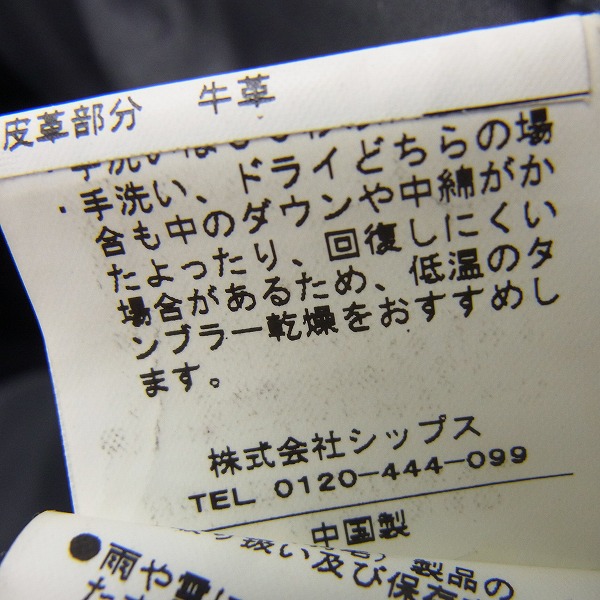 皮革部分 牛革
・手洗い、ドライどちらの場
合も中のダウンや中綿がか
たよったり、回復しにくい
場合があるため、低温のタ
ンブラー乾燥をおすすめし
ます。
株式会社シップス
TEL 0120-444-099
中国製
扱い及び保存
製品の
●雨や